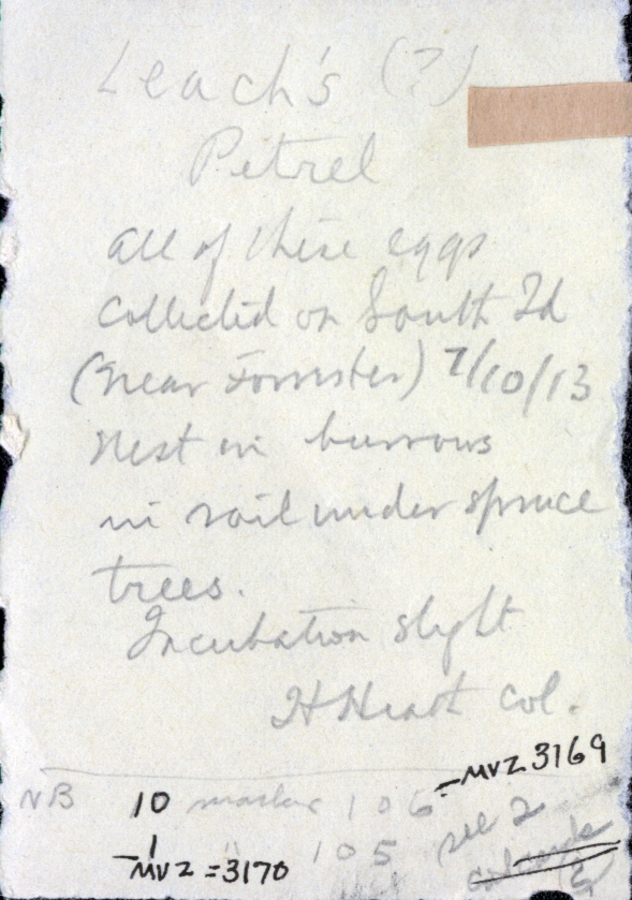 Leach's (?)
Petrel
all of these eggs
collected on South Id
(near Forrester) 7/10/13
Nest in burrows
in soil under spruce
trees.
Incubation slight
H Heath col.
NB 10 marks 106 - MVZ 3169
1 " 105 see 2
MVZ = 3170